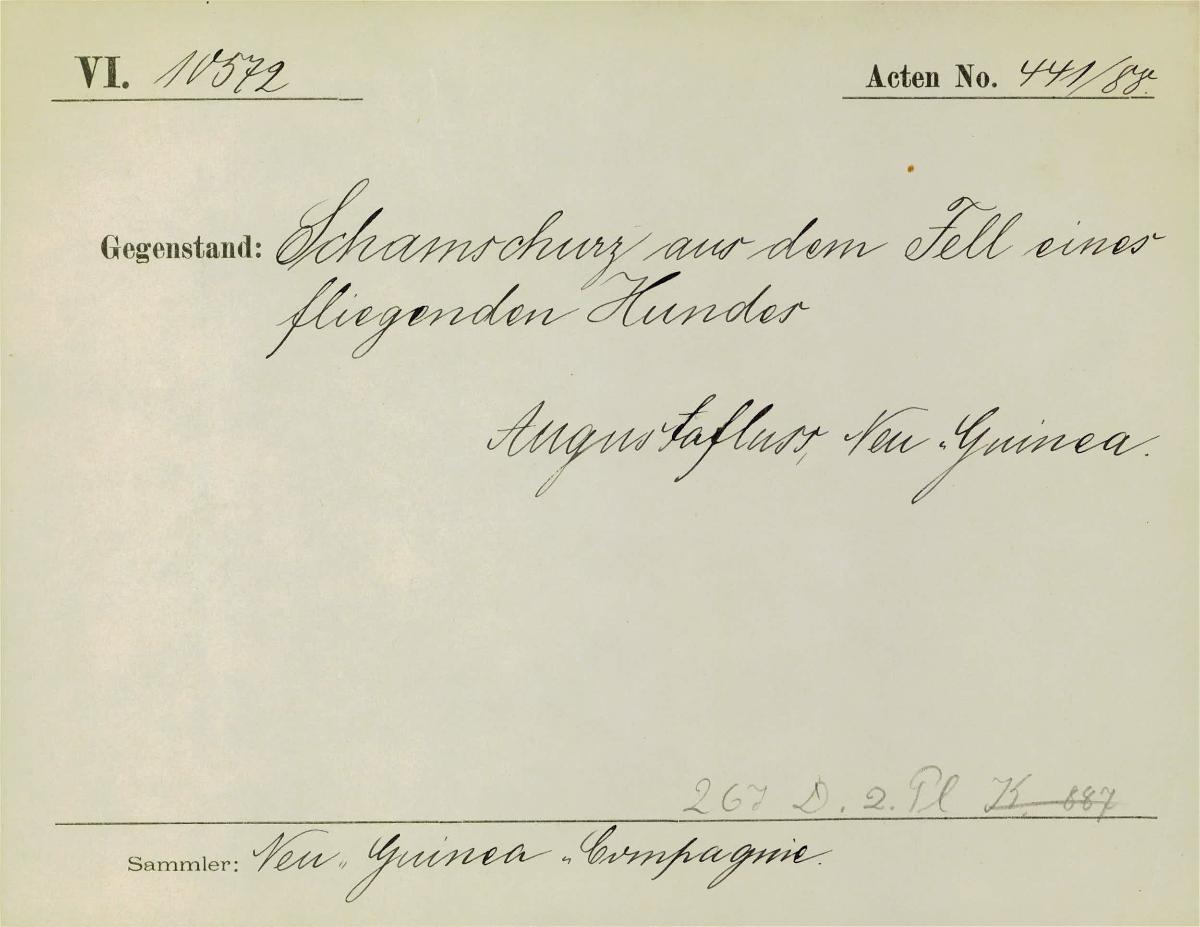 VI. 10572
Acten No. 441/88.
Gegenstand: Schamschurz aus dem Fell eines
fliegenden Hundes
Augustafluss, Neu-Guinea.
267 D. 2. Pl K. 887
Sammler: Neu-Guinea-Compagnie.